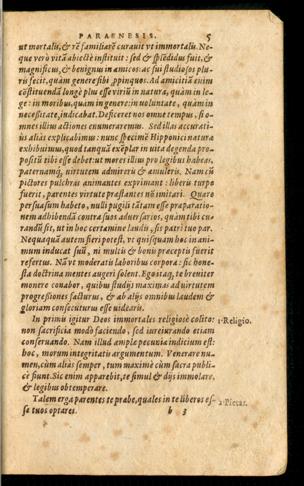 PARAENESIS. 5
ut mortalis, & rē familiarē curauit vt immortalis. Ne-
que verò vitā abiectè instituit: sed & splēdidus fuit, &
magnificus, & benignus in amicos: ac sui studiosos plu-
ris fecit, quàm genere sibi ꝓpinquos. Ad amicitiā enim
cōstituendā longè plus esse virii in natura, quàm in le-
ge: in moribus, quàm in genere: in uoluntate, quàm in
necessitate, indicabat. Deficeret nos omne tempus, si o-
mnes illius actiones enumeraremus. Sed illas accurati-
us aliàs explicabimus: nunc specimē Hipponici naturæ
exhibuimus, quod tanquā exēplar in uita degenda pro-
positū tibi esse debet: ut mores illius pro legibus habeas,
paternamq́; uirtutem admireris & æmuleris. Nam cū
pictores pulchras animantes exprimant: liberis turpe
fuerit, parentes virtute præstantes nō imitari. Quare
persuasum habeto, nulli pugili tātam esse præparatio-
nem adhibendā contra suos aduersarios, quàm tibi cu-
randū sit, ut in hoc certamine laudis, sis patri tuo par.
Nequaquā autem fieri potest, vt quisquam hoc in ani-
mum inducat suū, ni multis & bonis præceptis fuerit
refertus. Nā vt moderatis laboribus corpora: sic hone-
sta doctrina mentes augeri solent. Ego itaq́; te breuiter
monere conabor, quibus studijs maximas ad uirtutem
progressiones facturus, & ab alijs omnibus laudem &
gloriam consecuturus esse uidearis.
In primis igitur Deos immortales religiosè colito: 1. Religio.
non sacrificia modò faciendo, sed iureiurando etiam
conseruando. Nam illud amplæ pecuniæ indicium est:
hoc, morum integritatis argumentum. Venerare nu-
men, cùm aliàs semper, tum maximè cùm sacra publi-
cè fiunt. Sic enim apparebit, te simul & dijs immolare,
& legibus obtemperare.
Talem erga parentes te præbe, quales in te liberos es- 2. Pietas.
se tuos optares.
b 3